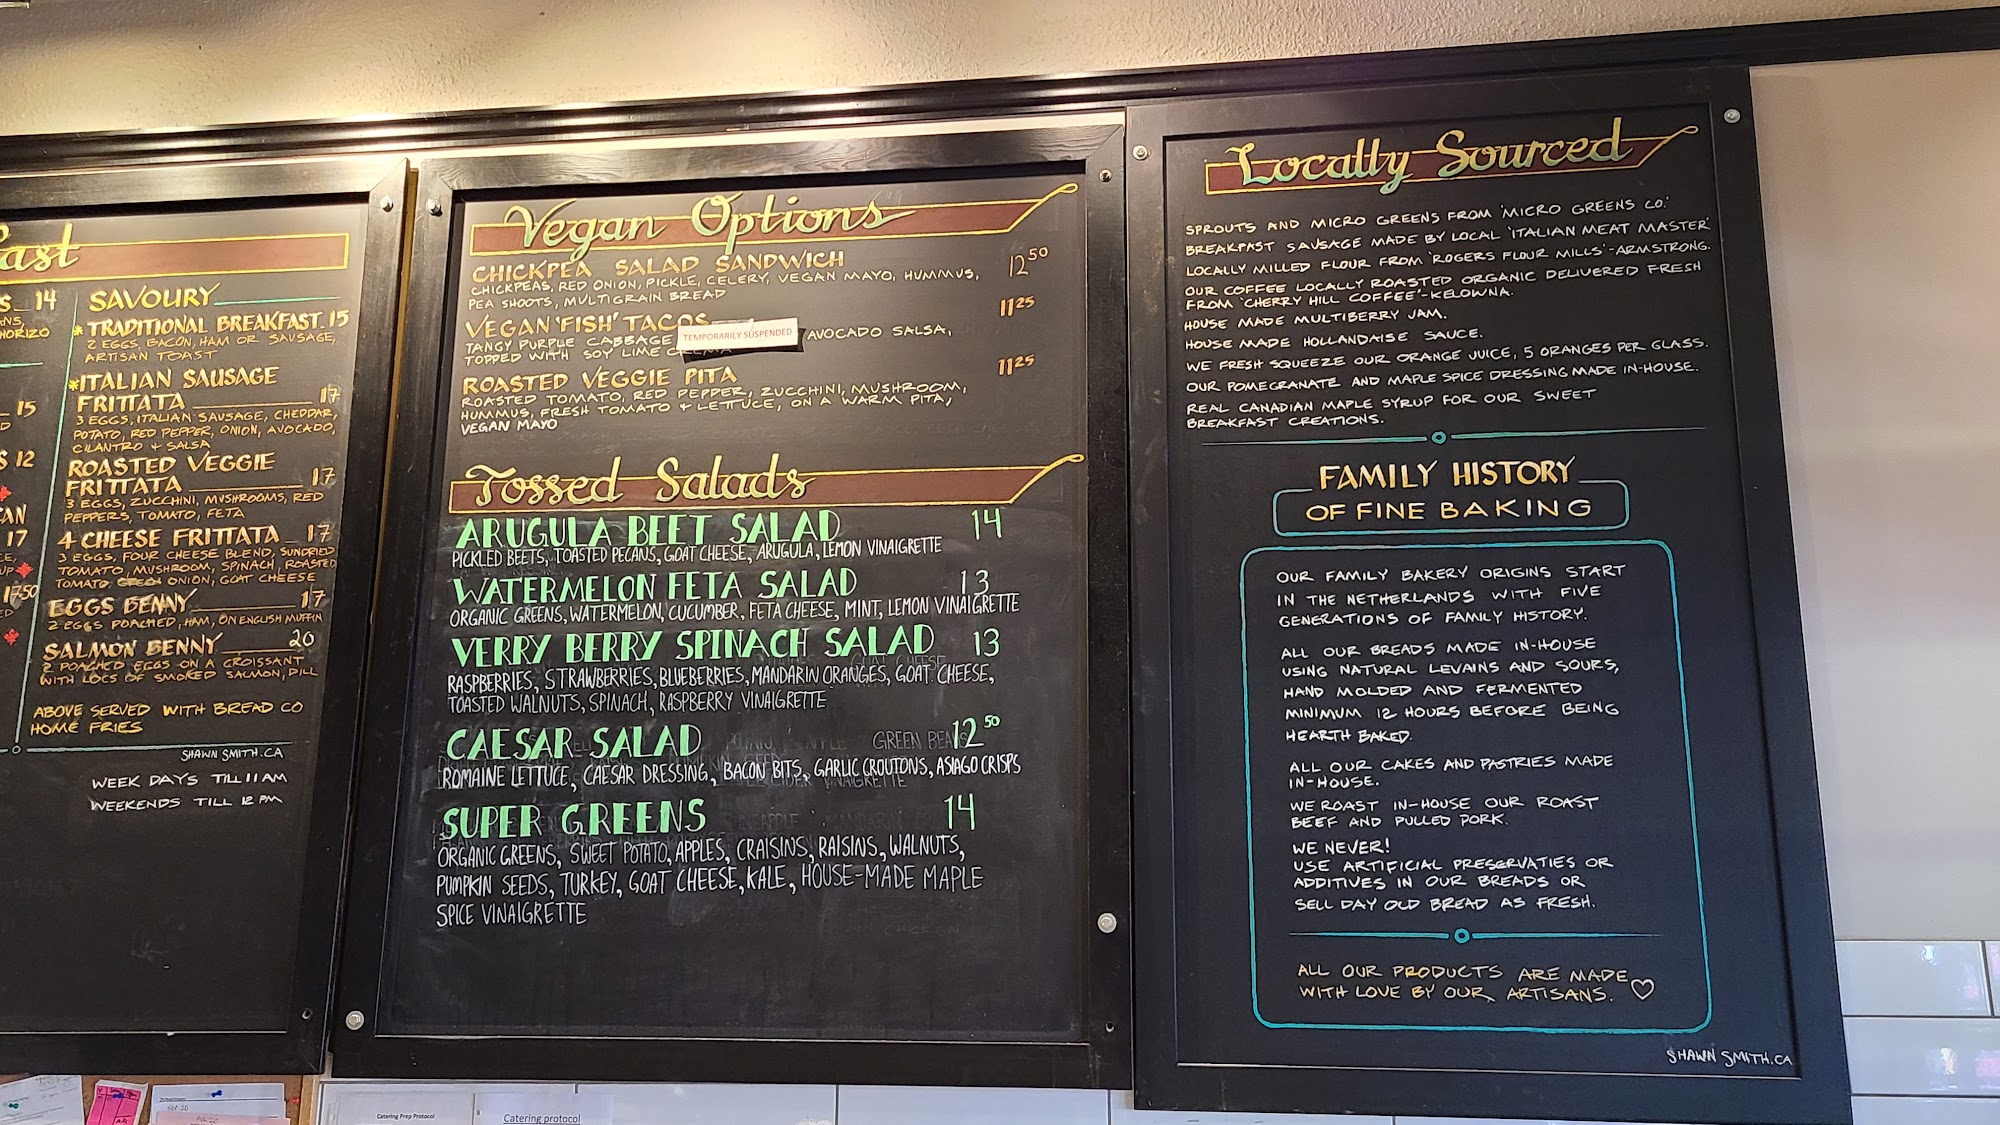 ast
S 14
HORIZO
15
S 12
AN
17
UP
1750
SAVOURY
* TRADITIONAL BREAKFAST 15
2 EGGS, BACON, HAM OR SAUSAGE,
ARTISAN TOAST
*ITALIAN SAUSAGE
FRITTATA 17
3 EGGS, ITALIAN SAUSAGE, CHEDDAR,
POTATO, RED PEPPER, ONION, AVOCADO,
CILANTRO + SALSA
ROASTED VEGGIE
FRITTATA 17
3 EGGS, ZUCCHINI, MUSHROOMS, RED
PEPPERS, TOMATO, FETA
4 CHEESE FRITTATA 17
3 EGGS, FOUR CHEESE BLEND, SUNDRIED
TOMATO, MUSHROOM, SPINACH, ROASTED
TOMATO ONION, GOAT CHEESE
EGGS BENNY 17
2 EGGS POACHED, HAM, ON ENGLISH MUFFIN
SALMON BENNY 20
2 POACHED EGGS ON A CROISSANT
WITH LOTS OF SMOKED SALMON, DILL
ABOVE SERVED WITH BREAD CO
HOME FRIES
SHAWN SMITH.CA
WEEK DAYS TILL 11 AM
WEEKENDS TILL 12 PM
Vegan Options
CHICKPEA SALAD SANDWICH 12 50
CHICKPEAS, RED ONION, PICKLE, CELERY, VEGAN MAYO, HUMMUS,
PEA SHOOTS, MULTIGRAIN BREAD
VEGAN 'FISH' TACOS 11 25
TANGY PURPLE CABBAGE TEMPORARILY SUSPENDED AVOCADO SALSA,
TOPPED WITH SOY LIME CREMA
ROASTED VEGGIE PITA 11 25
ROASTED TOMATO, RED PEPPER, ZUCCHINI, MUSHROOM,
HUMMUS, FRESH TOMATO + LETTUCE, ON A WARM PITA,
VEGAN MAYO
Tossed Salads
ARUGULA BEET SALAD 14
PICKLED BEETS, TOASTED PECANS, GOAT CHEESE, ARUGULA, LEMON VINAIGRETTE
WATERMELON FETA SALAD 13
ORGANIC GREENS, WATERMELON, CUCUMBER, FETA CHEESE, MINT, LEMON VINAIGRETTE
VERRY BERRY SPINACH SALAD 13
RASPBERRIES, STRAWBERRIES, BLUEBERRIES, MANDARIN ORANGES, GOAT CHEESE,
TOASTED WALNUTS, SPINACH, RASPBERRY VINAIGRETTE
CAESAR SALAD GREEN BEANS 12 50
ROMAINE LETTUCE, CAESAR DRESSING, BACON BITS, GARLIC CROUTONS, ASIAGO CRISPS
SUPER GREENS 14
ORGANIC GREENS, SWEET POTATO, APPLES, CRAISINS, RAISINS, WALNUTS,
PUMPKIN SEEDS, TURKEY, GOAT CHEESE, KALE, HOUSE-MADE MAPLE
SPICE VINAIGRETTE
Locally Sourced
SPROUTS AND MICRO GREENS FROM 'MICRO GREENS CO.'
BREAKFAST SAUSAGE MADE BY LOCAL 'ITALIAN MEAT MASTER'
LOCALLY MILLED FLOUR FROM 'ROGERS FLOUR MILLS'-ARMSTRONG.
OUR COFFEE LOCALLY ROASTED ORGANIC DELIVERED FRESH
FROM 'CHERRY HILL COFFEE'-KELOWNA.
HOUSE MADE MULTIBERRY JAM.
HOUSE MADE HOLLANDAISE SAUCE.
WE FRESH SQUEEZE OUR ORANGE JUICE, 5 ORANGES PER GLASS.
OUR POMEGRANATE AND MAPLE SPICE DRESSING MADE IN-HOUSE.
REAL CANADIAN MAPLE SYRUP FOR OUR SWEET
BREAKFAST CREATIONS.
FAMILY HISTORY
OF FINE BAKING
OUR FAMILY BAKERY ORIGINS START
IN THE NETHERLANDS WITH FIVE
GENERATIONS OF FAMILY HISTORY.
ALL OUR BREADS MADE IN-HOUSE
USING NATURAL LEVAINS AND SOURS,
HAND MOLDED AND FERMENTED
MINIMUM 12 HOURS BEFORE BEING
HEARTH BAKED.
ALL OUR CAKES AND PASTRIES MADE
IN-HOUSE.
WE ROAST IN-HOUSE OUR ROAST
BEEF AND PULLED PORK.
WE NEVER!
USE ARTIFICIAL PRESERVATIES OR
ADDITIVES IN OUR BREADS OR
SELL DAY OLD BREAD AS FRESH.
ALL OUR PRODUCTS ARE MADE
WITH LOVE BY OUR ARTISANS.
SHAWN SMITH.CA
Catering Prep Protocol
Catering protocol